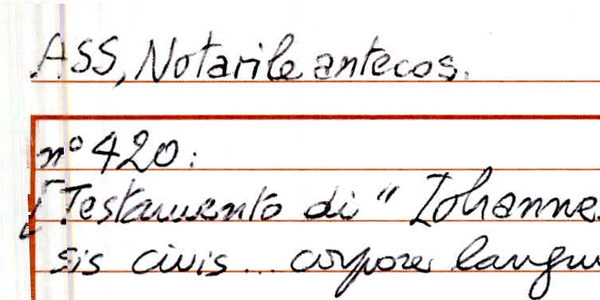 ASS, Notarile antecos.
n° 420:
[Testamento di "Iohanne
sis civis... corpore langu